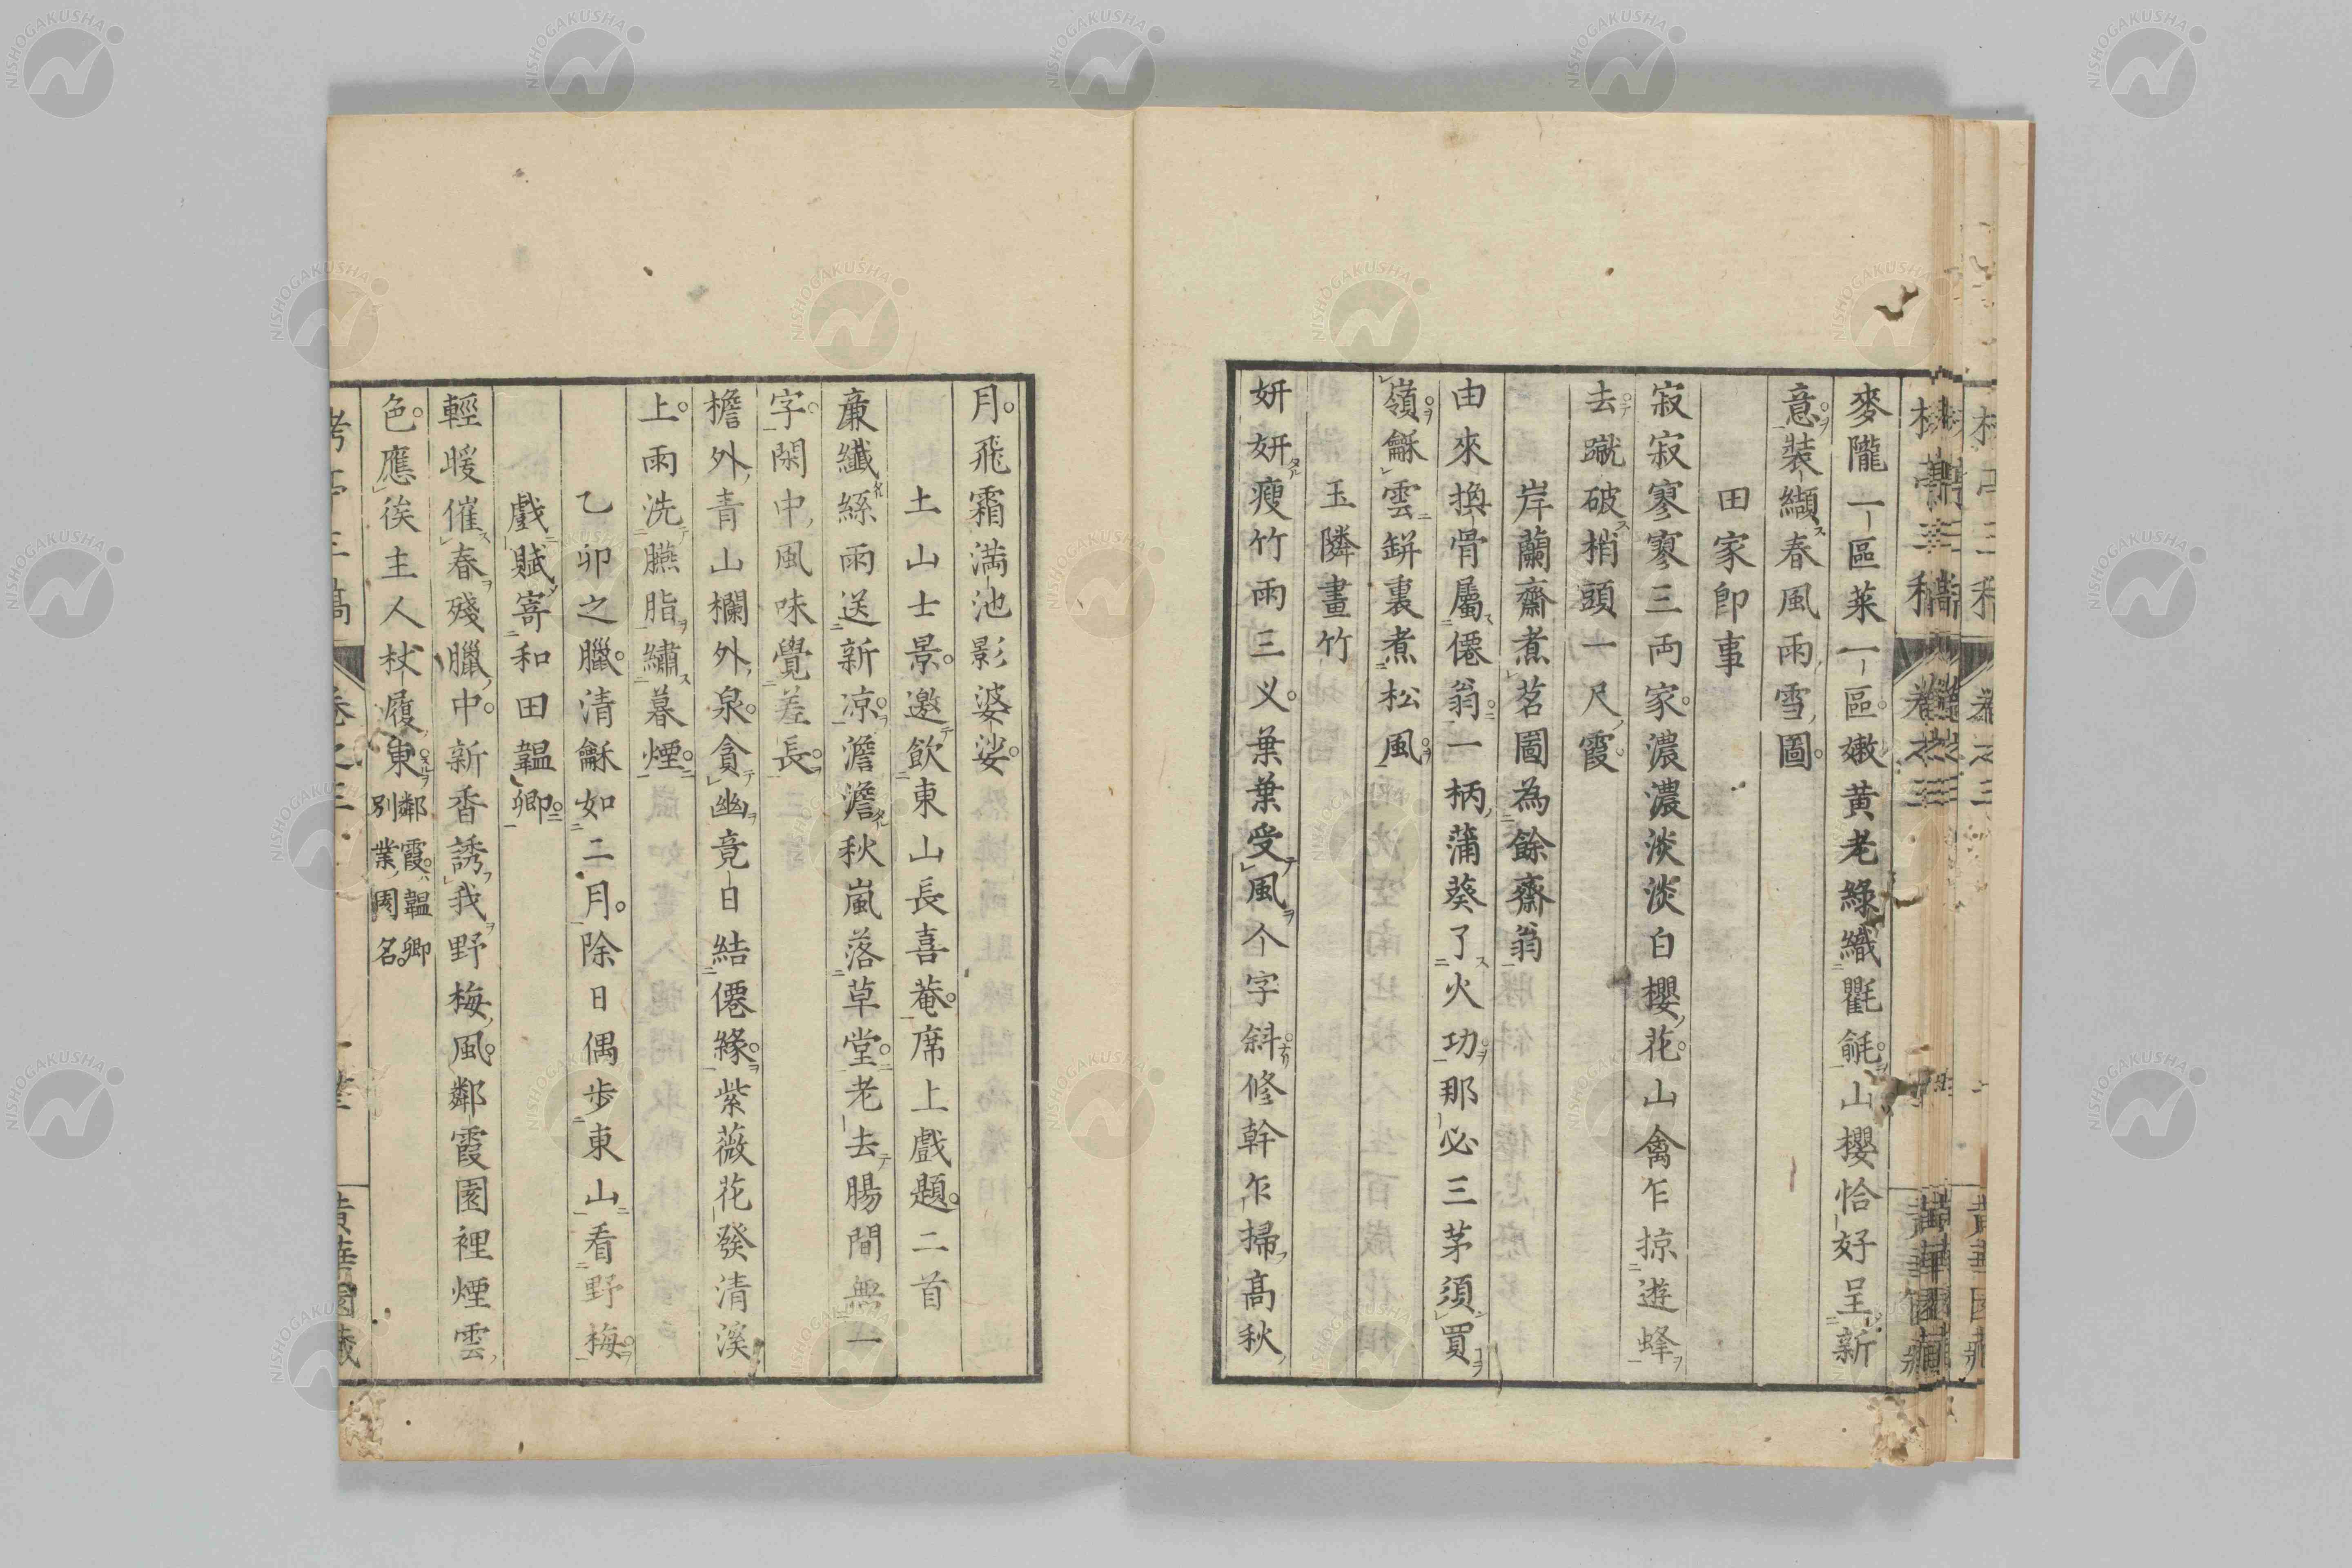 麥隴一區菜一區嫩黄老綠織氍毹山櫻恰好呈新
意裝纈春風雨雪圖
田家卽事
寂寂寥寥三両家濃濃淡淡白櫻花山禽乍掠遊蜂
去蹴破梢頭一尺霞
岸蘭齋煮茗圖為餘齋翁
由來換骨屬僊翁一柄蒲葵了火功那必三茅須買
嶺龢雲缾裏煮松風
玉隣畫竹
妍妍瘦竹兩三乂葉葉受風个字斜修幹乍掃高秋
月飛霜満池影婆娑
土山士景邀飲東山長喜菴席上戲題二首
廉纖絲雨送新凉澹澹秋嵐落草堂老去腸間無一
字閑中風味覺差長
檐外青山欄外泉貪幽竟日結僊緣紫薇花發清溪
上雨洗臙脂繡暮煙
乙卯之臘清龢如二月除日偶歩東山看野梅
戲賦寄和田韞卿
輕暖催春殘臘中新香誘我野梅風鄰霞園裡煙雲
色應俟主人杖履東 鄰霞韞卿
別業園名